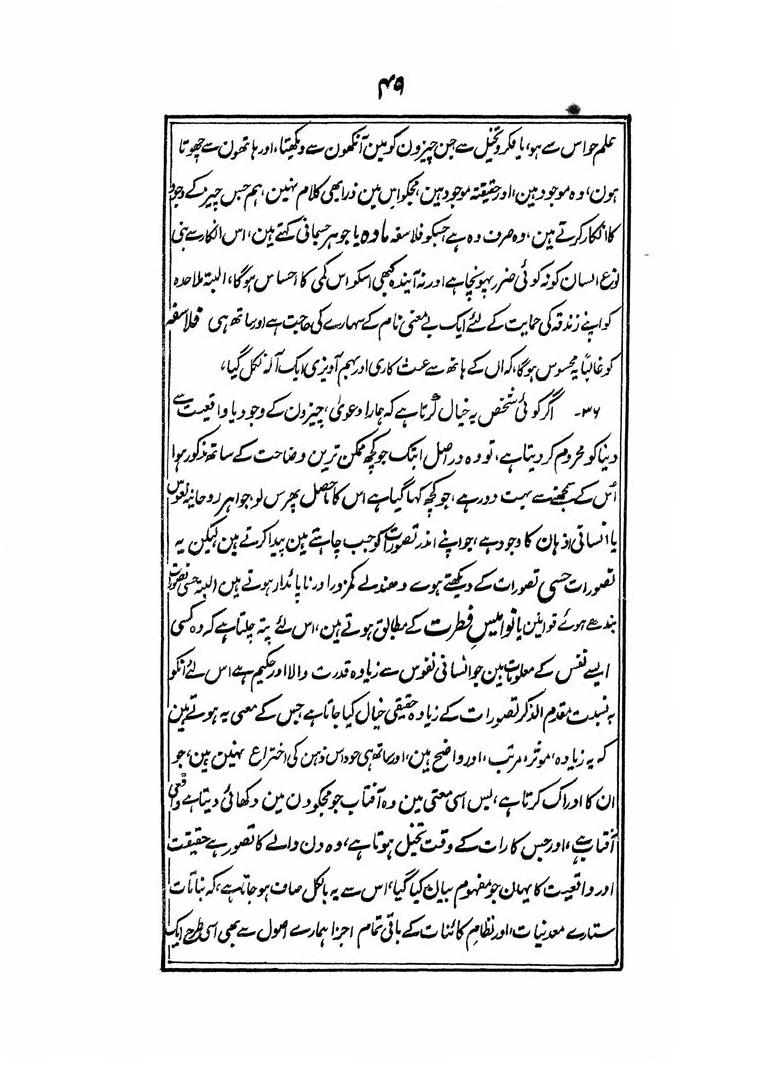 ۴۹
علم حواس سے ہو، یا فکر و تخیل سے جن چیزون کو مین آنکھون سے دیکھتا، اور ہاتھون سے چھوتا
ہون، وہ موجود ہین، اور حقیقتہً موجود ہین، مجکو اس مین ذرا بھی کلام نہین، ہم جس چیز کے وجود
کا انکار کرتے ہین، وہ صرف وہ ہے جسکو فلاسفہ مادہ یا جوہر جسمانی کہتے ہین، اس انکار سے بنی
نوع انسان کو نہ کوئی ضرر پہونچا ہے اور نہ آیندہ کبھی اسکو اس کمی کا احساس ہوگا، البتہ ملاحدہ
کو اپنے زندقہ کی حمایت کے لئے ایک بے معنی نام کے سہارے کی حاجت ہے اور ساتھ ہی فلاسفہ
کو غالباً یہ محسوس ہوگا، کہ ان کے ہاتھ سے عبث کاری اور بہم آویزی ایک آلہ نکل گیا،
۳۶- اگر کوئی شخص یہ خیال کرتا ہے کہ ہمارا دعویٰ، چیزون کے وجود یا واقعیت سے
دنیا کو محروم کر دیتا ہے، تو وہ دراصل ابتک جو کچھ ممکن ترین وضاحت کے ساتھ مذکور ہوا
اُس کے سمجھنے سے بہت دور ہے، جو کچھ کہا گیا ہے اس کا ماحصل پھر سن لو، جواہر روحانیہ نفوس
یا انسانی اذہان کا وجود ہے، جو اپنے اندر تصورات کو جب چاہتے ہین پیدا کرتے ہین لیکن یہ
تصورات حسی تصورات کے دیکھتے ہوے دھندلے کمزور اور ناپائدار ہوتے ہین البتہ حسی تصورات
بندھے ہوئے قوانین یا نوامیس فطرت کے مطابق ہوتے ہین، اس لئے پتہ چلتا ہے کہ وہ کسی
ایسے نفس کے معلومات ہین جو انسانی نفوس سے زیادہ قدرت والا اور حکیم ہے اس لئے انکو
بہ نسبت مقدم الذکر تصورات کے زیادہ حقیقی خیال کیا جاتا ہے جس کے معنی یہ ہوتے ہین
کہ یہ زیادہ مؤثر، مرتب، اور واضح ہین، اور ساتھ ہی خود اس ذہن کی اختراع نہین ہین، جو
ان کا ادراک کرتا ہے، بس اسی معنی مین وہ آفتاب جو مجکو دن مین دکھائی دیتا ہے واقعی
آفتاب ہے، اور جس کا رات کے وقت تخیل ہوتا ہے، وہ دن والے کا تصور ہے حقیقت
اور واقعیت کا یہان جو مفہوم بیان کیا گیا، اس سے یہ بالکل صاف ہو جاتا ہے، کہ نباتات
ستارے معدنیات، اور نظام کائنات کے باقی تمام اجزا ہمارے اصول سے بھی اسی طرح ایک